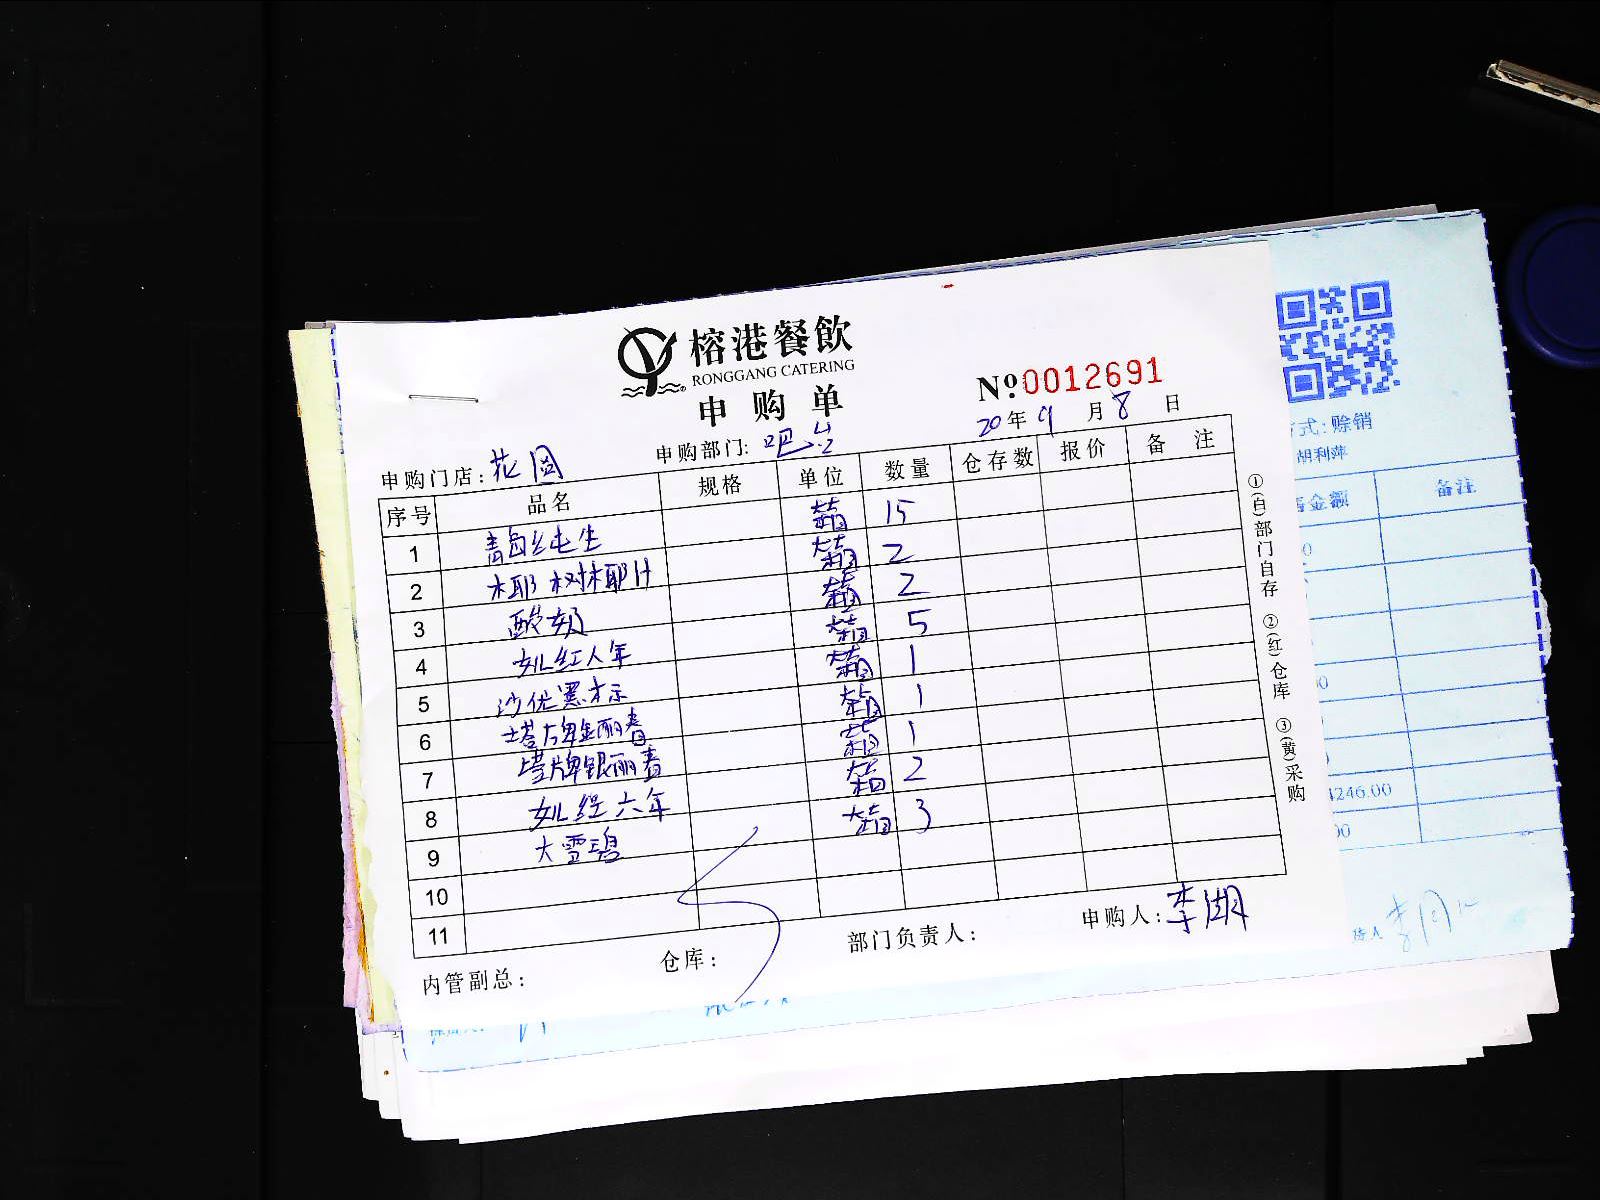 榕港餐飲
RONGGANG CATERING
申购单
№:0012691
20年9月8日
申购门店:花园
申购部门:吧台
序号 品名 规格 单位 数量 仓存数 报价 备注
1 青岛纯生 箱 15
2 椰树椰汁 箱 2
3 酸奶 箱 2
4 女儿红八年 箱 5
5 沙优黑标 箱 1
6 塔牌金丽春 箱 1
7 塔牌银丽春 箱 1
8 女儿红六年 箱 2
9 大雪碧 箱 3
10
11
内管副总:
仓库:
部门负责人:
申购人:李湖
①(白)部门自存 ②(红)仓库 ③(黄)采购
方式:赊销
胡利萍
售金额 备注
4246.00